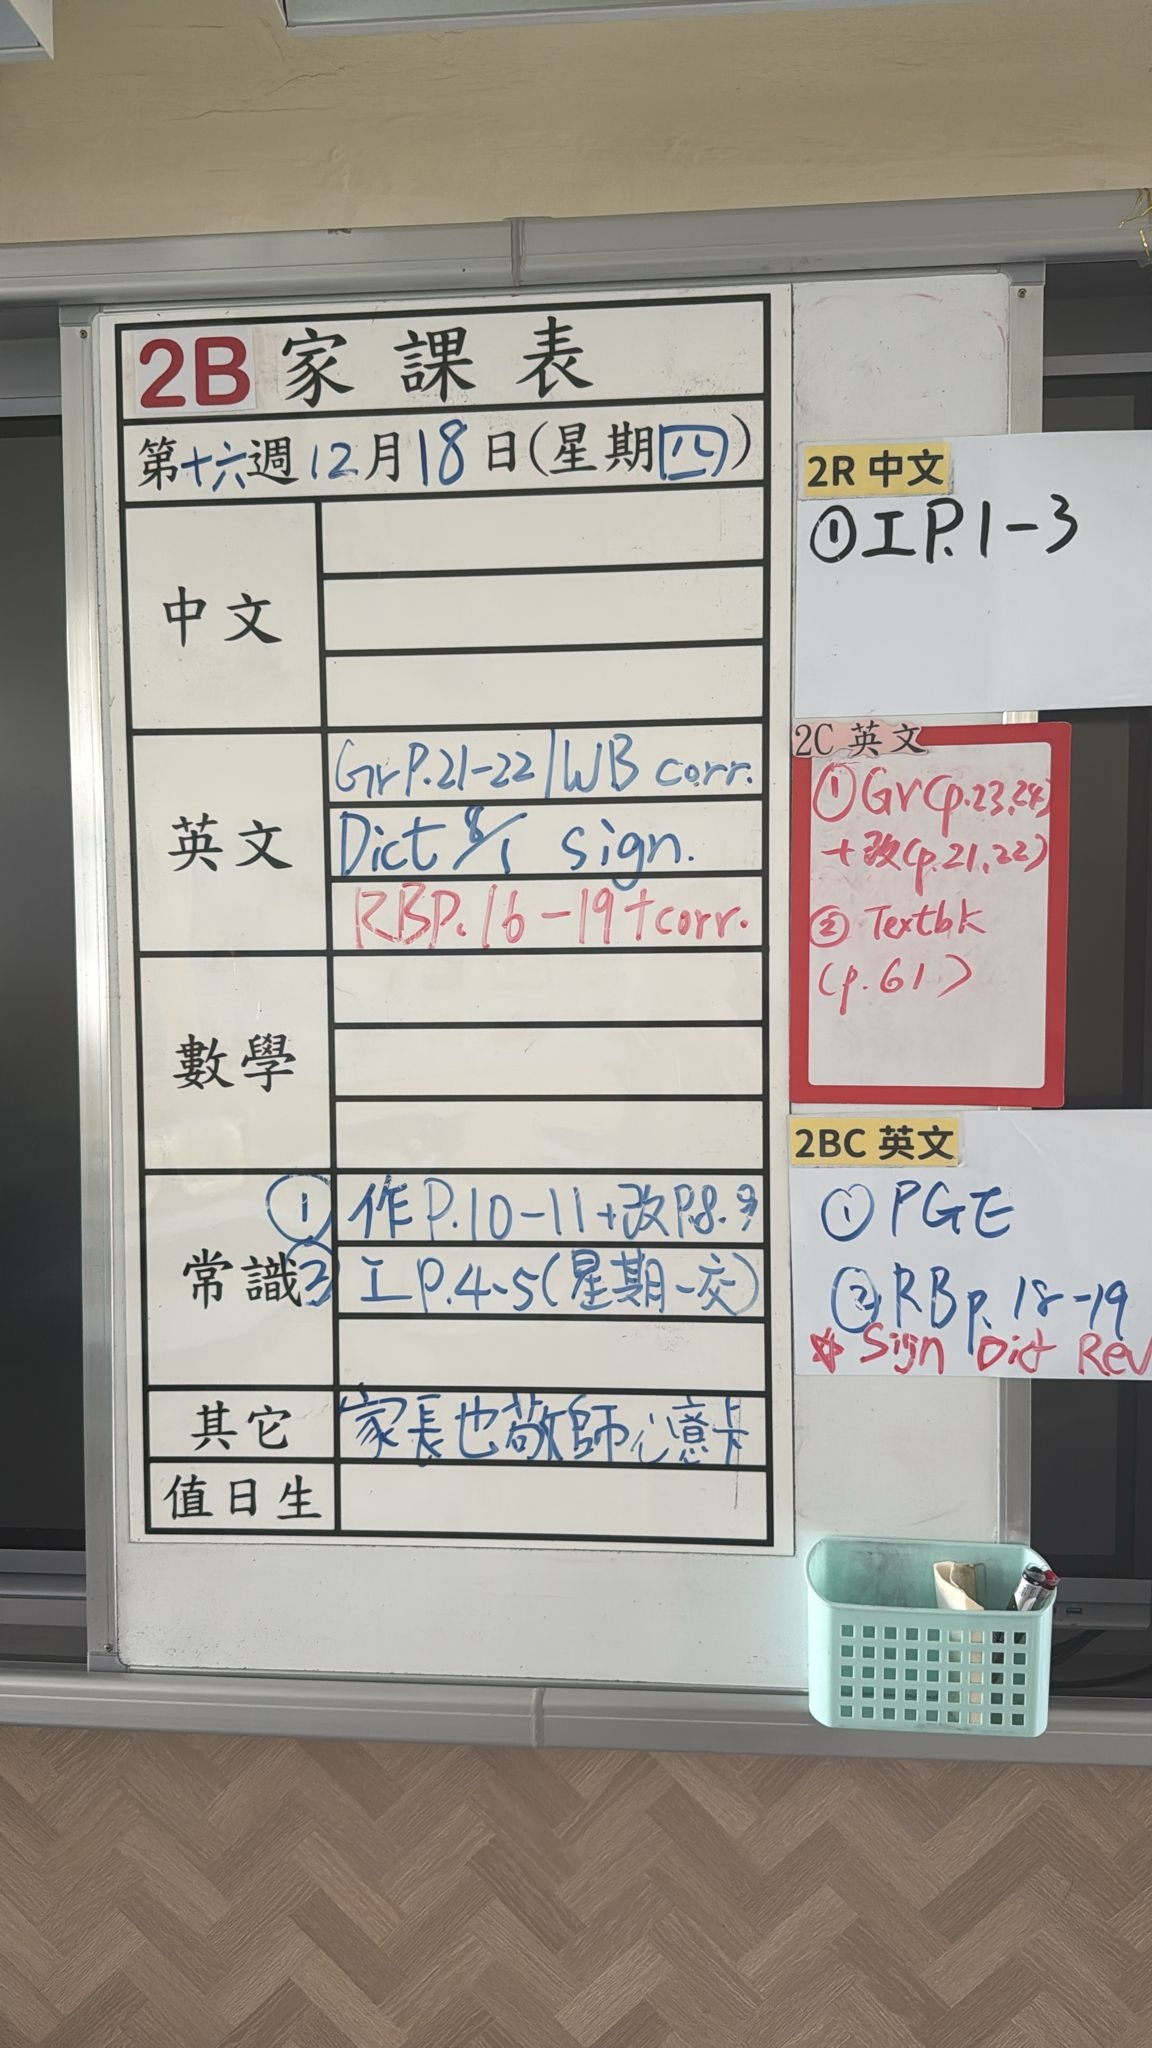 2B 家課表
第十六週12月18日(星期四)
中文
英文
GrP.21-22/WB corr.
Dict 8/1 sign.
RBP.16-19+corr.
數學
常識
① 作P.10-11+改P.8.9
② 工P.4-5(星期一交)
其它
家長也敬師心意卡
值日生
2R 中文
①工P.1-3
2C 英文
①Gr(p.23,24)
+改(p.21,22)
② Textbk
(p.61)
2BC 英文
① PGE
② RBp.18-19
* Sign Dict Rev